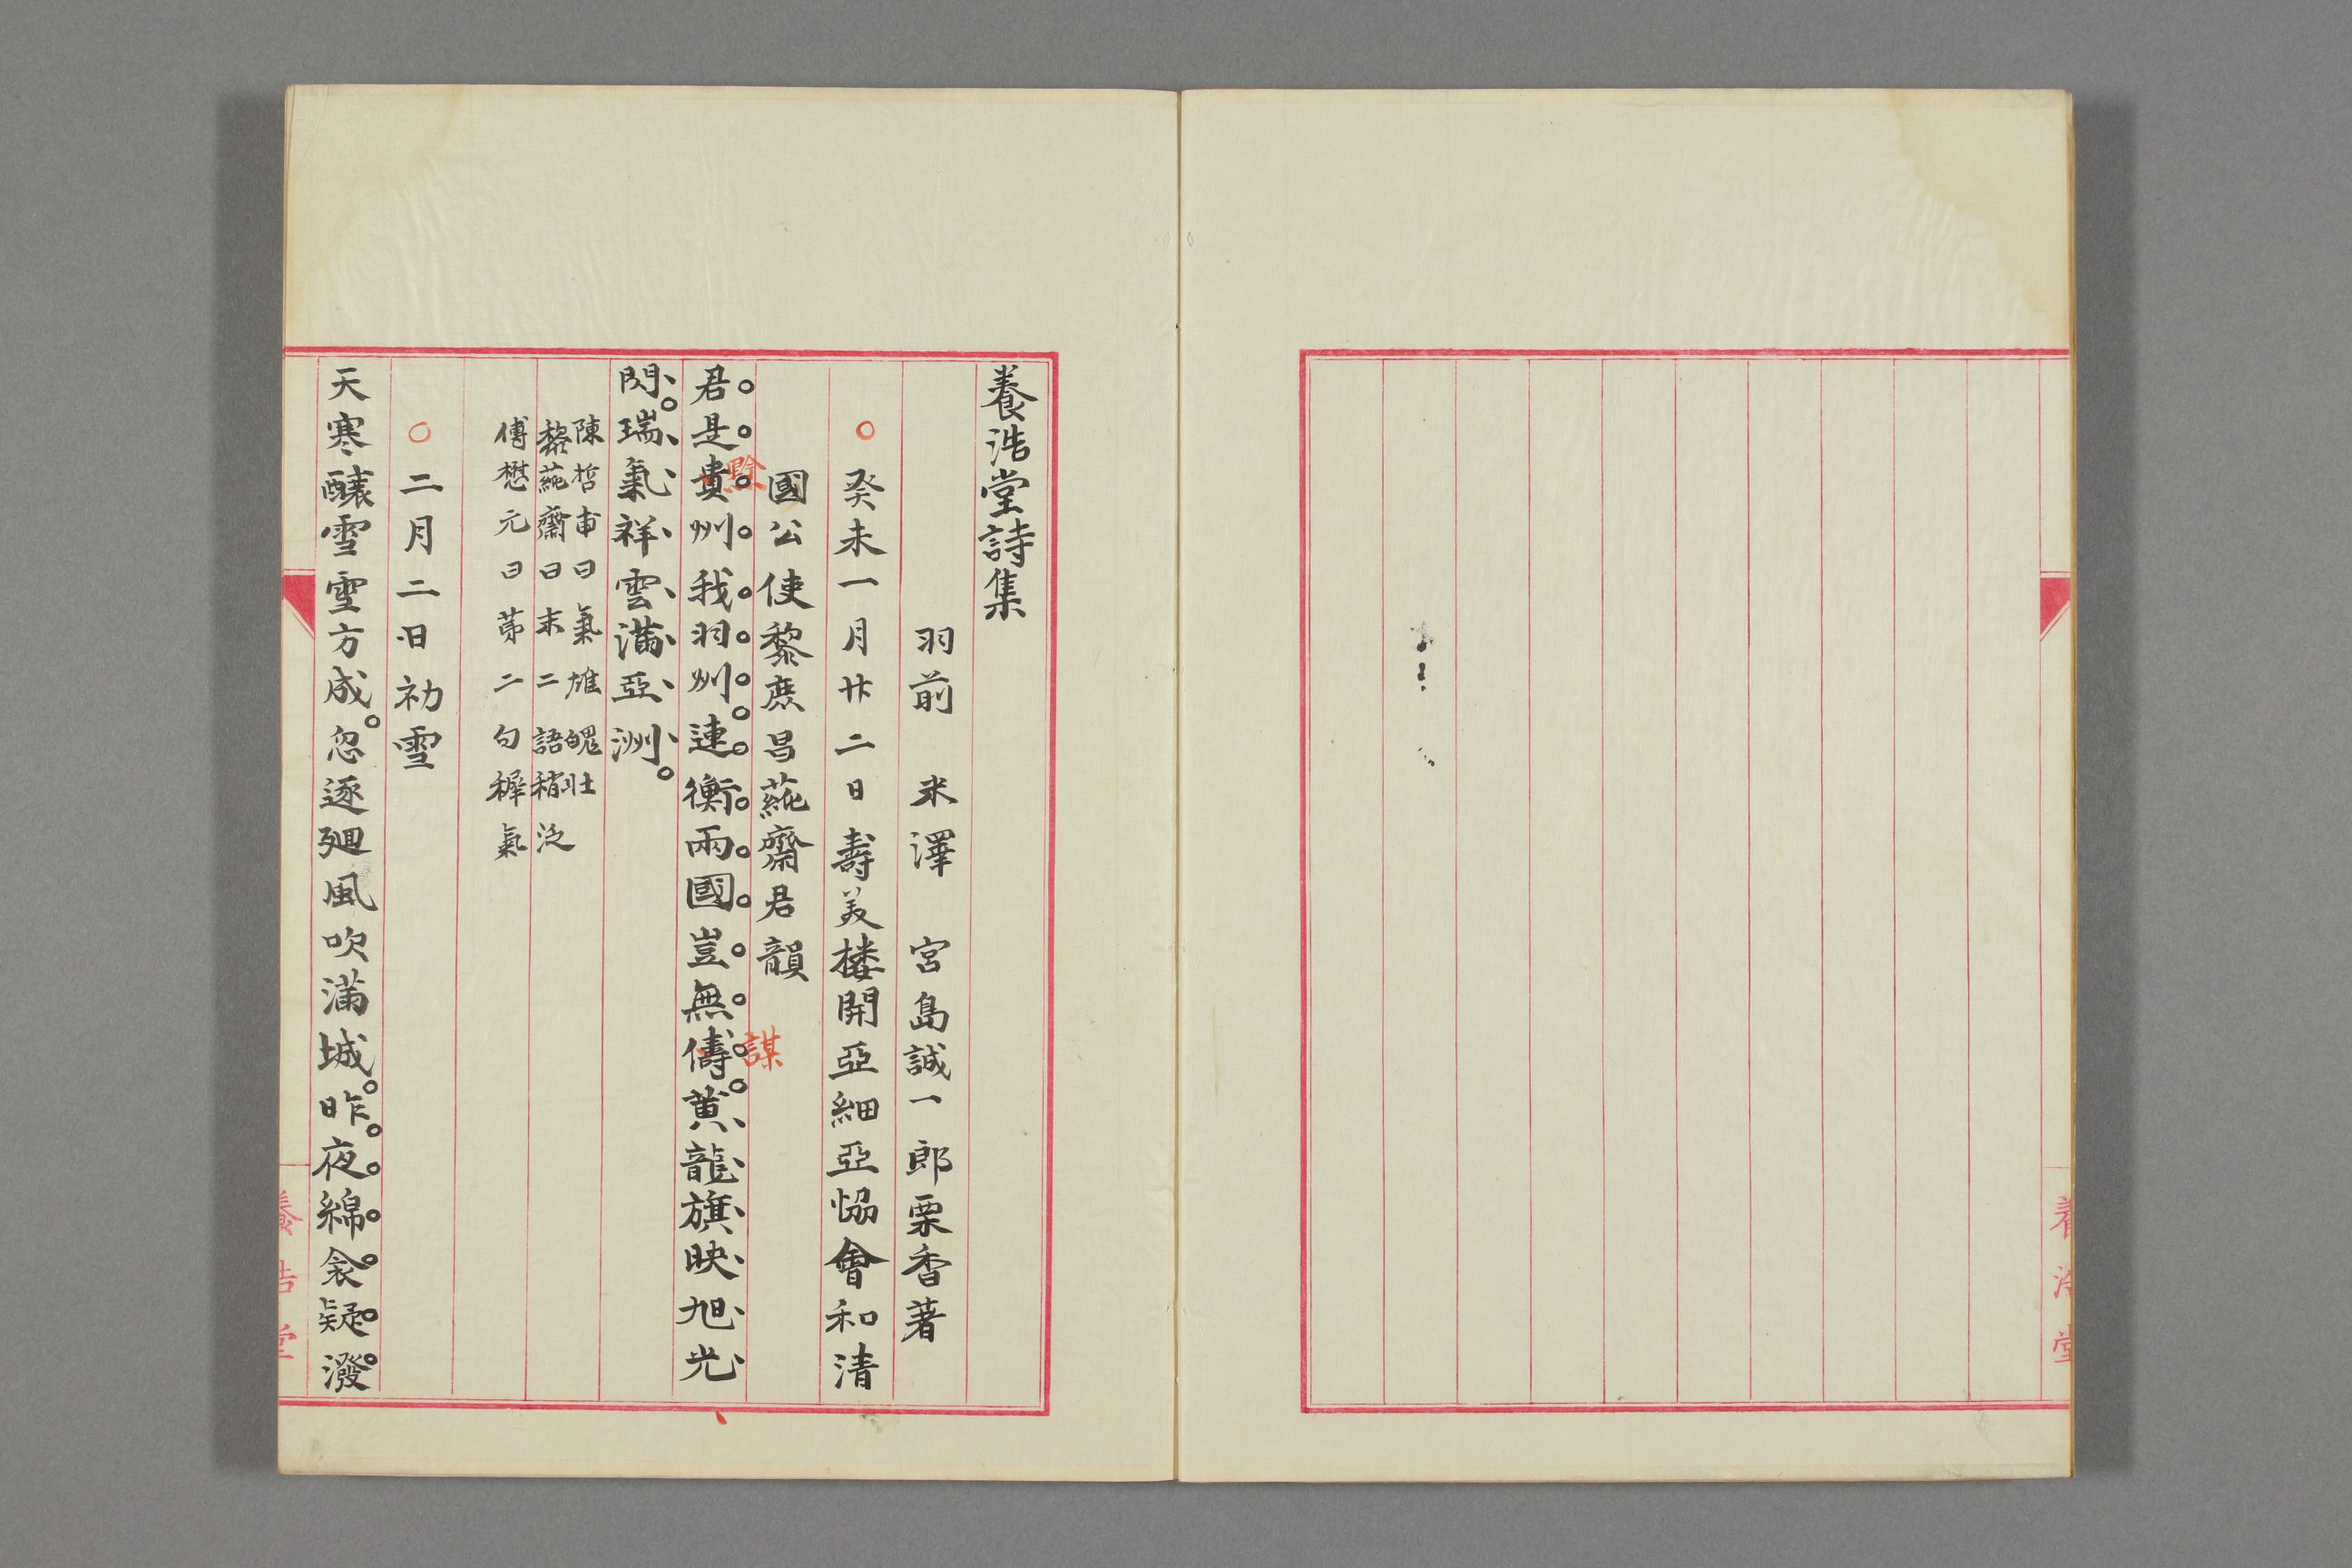 養浩堂詩集
羽前　米澤　宮島誠一郎栗香著
癸未一月廿二日壽美楼開亞細亞協會和清
國公使黎庶昌蒓齋君韻
黔
謀
君是貴州我羽州。連衡兩國豈無儔。黄龍旗映旭光
閃。瑞氣祥雲滿亞洲。
陳哲甫曰氣雄魄壯
黎蒓齋曰末二語稍泛
傅懋元曰苐二句穉氣
二月二日初雪
天寒釀雪雪方成。忽逐廻風吹滿城。昨夜綿衾疑潑
養浩堂
養浩堂